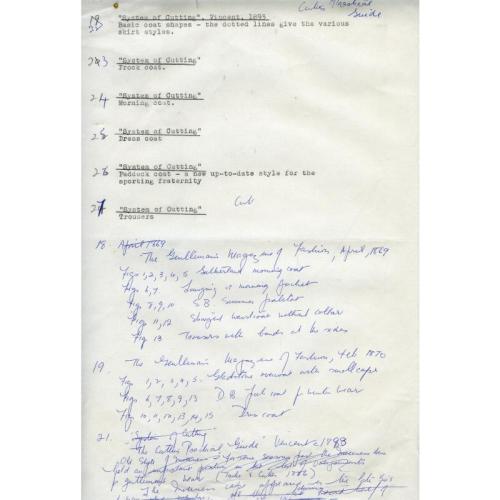 Cutters Practical
Guide
22 "System of Cutting", Vincent, 1893
Basic coat shapes - the dotted lines give the various
skirt styles.
23 "System of Cutting"
Frock coat.
24 "System of Cutting"
Morning coat.
25 "System of Cutting"
Dress coat
26 "System of Cutting"
Paddock coat - a new up-to-date style for the
sporting fraternity
27 "System of Cutting"
Trousers
18. April 1869
The Gentleman's Magazine of Fashion, April, 1869
Figs 1,2,3,4,5 Sutherland morning coat
Figs 6,7 Lounging or morning Jacket
Figs 8,9,10 S.B. Summer paletot
Figs 11,12 waistcoat without collar
Fig 13 Trousers with bands at the sides
19. The Gentleman's Magazine of Fashion, Feb 1870
Figs 1,2,3,4,5. Gladstone overcoat with small cape
Figs 6,7,8,9,13 D.B. coat for winter wear
Figs 10,11,12,13,14,15 Dress coat
21. "System of Cutting
The Cutters Practical Guide" Vincent
Old Style of Inverness
hold an important position in the
gentleman's wear
The Inverness appearing in the